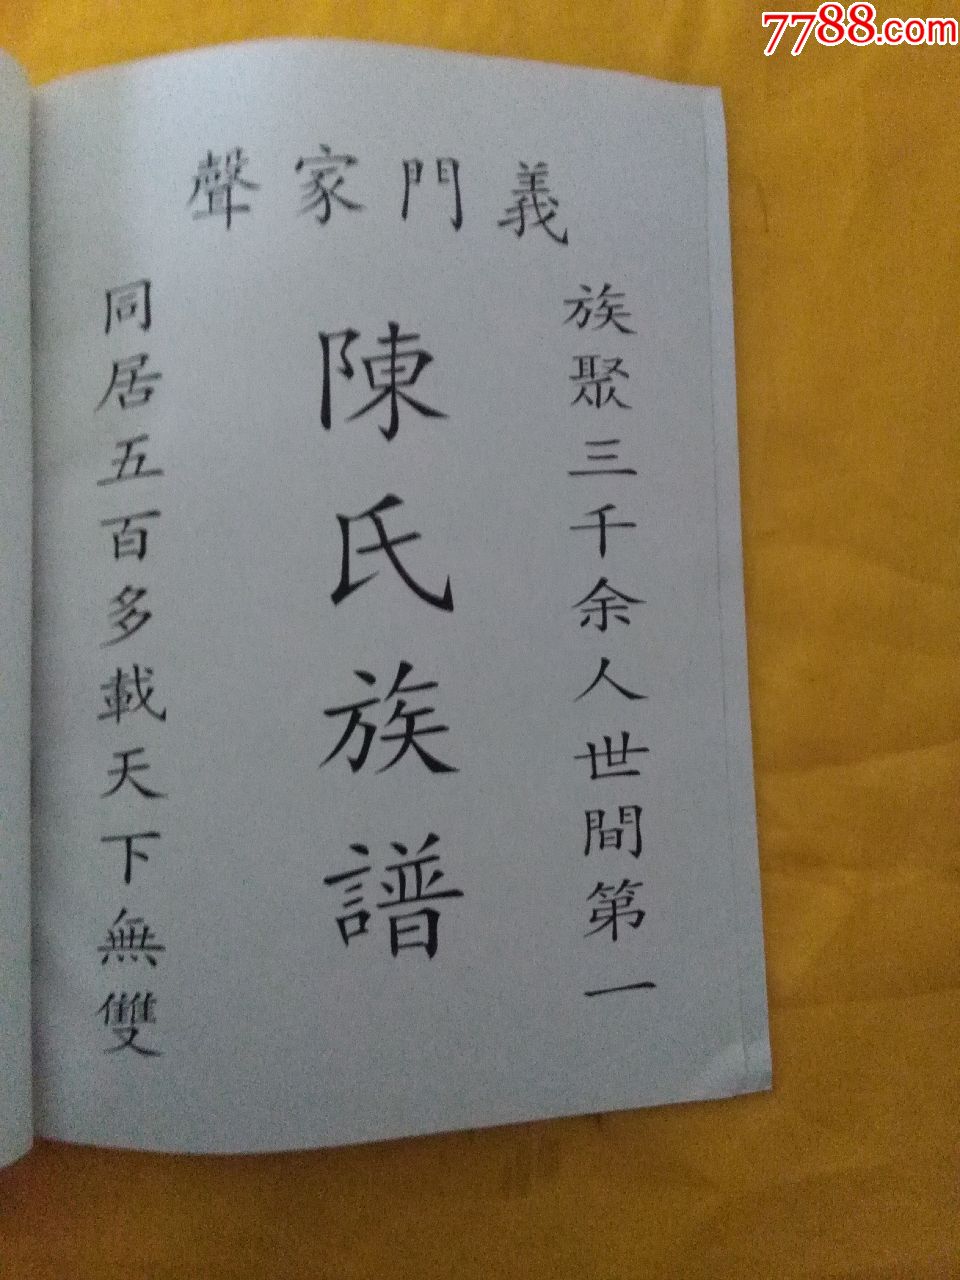 7788.com
義門家聲
族聚三千余人世間第一
陳氏族譜
同居五百多載天下無雙